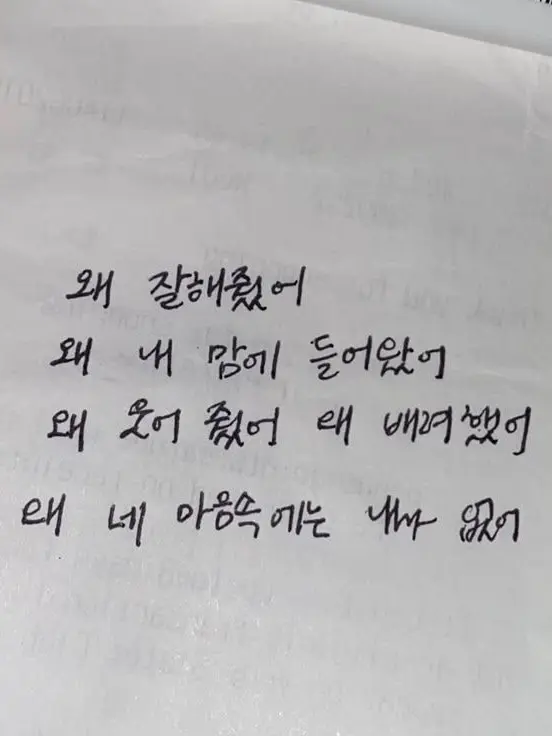 왜 잘해줬어
왜 내 맘에 들어왔어
왜 웃어 줬어 왜 배려했어
왜 네 마음속에는 내가 없어